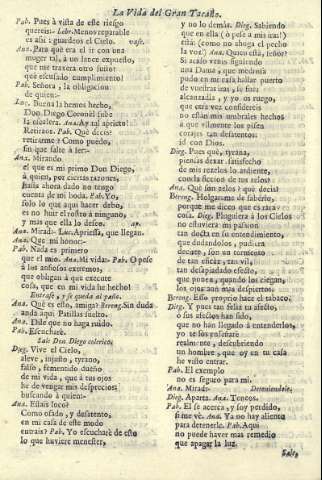 La Vida del Gran Tacaño.
Pab. Pues à vista de este riesgo
quereis:- Lebr. Menos reparable
es asi: guardeos el Cielo. vase.
Ana. Para que era el ir con una
muger tal, à un lance expuesto,
que me traxera otro susto?
què escusado cumplimiento!
Pab. Señora, la obligacion
de quien:-
Luc. Buena la hemos hecho,
Don Diego Coronèl sube
la escalera. Ana. Ay tal aprieto!
Retiraos. Pab. Què decis?
retirarme? Como puedo,
sin que salte à ser:-
Ana. Mirando
el que es mi primo Don Diego,
à quien, por ciertas razones,
hasta ahora dado no tengo
cuenta de mi boda. Pab. Yo,
solo lo que aqui haber debo,
es no huir el rostro à ninguno,
y mas que ello lo dudeis.
Ana. Mirad:- Luc. Aprisa, que llegan.
Ana. Que mi honor:-
Pab. Nada es primero
que el mio. Ana. Mi vida:- Pab. O pese
à los ansiosos extremos,
que obligan à que execute
cosa, que en mi vida he hecho!
Entrase, y se queda al paño.
Ana. Què es ello, amiga? Bereng. Sin duda
anda aqui Patillas suelto.
Ana. Dile que no haga ruido.
Pab. Escucharè.
Sale Don Diego colerico.
Dieg. Vive el Cielo,
aleve, injusto, tyrano,
falso, fementido dueño
de mi vida, que à tus ojos
he de vengar mis desprecios,
buscando à quien:-
Ana. Estais loco?
Como osado, y desatento,
en mi casa de este modo
entrais? Pab. Yo escucharè de esto
lo que huviere menester,
y no lo demàs. Dieg. Sabiendo
que en ella (ò pese à mis iras!)
està: (como no ahoga el pecho
la voz!) Ana. Quien està, señor?
Si acaso venis siguiendo
una Dama, que medrosa
pudo en mi casa hallar puerto
de vuestras iras, id fuera
alcanzadla, y yo os ruego,
que otra vez confidereis
no estàn mis umbrales hechos
à que vilmente los pisen
corajes tan desatentos:
id con Dios.
Dieg. Pues què, tyrana,
piensas dexar satisfecho
de mis rezelos lo ardiente,
con la ficcion de tus zelos?
Ana. Què son zelos? què decis?
Bereng. Holgarame de saberlo,
porque me dicen que es rara
cosa. Dieg. Pluguiera à los Cielos
no estuviera mi passion
tan docta en su entendimiento,
que dudandolos, pudiera
decirte, son un tormento
de tan eficàz, tan vil,
tan desapiadado efecto,
que ponen, quando los ciegan,
los ojos aun mas despiertos.
Bereng. Esso proprio hace el tabaco.
Dieg. Y pues tan feliz tu afecto,
ò sus afectos han sido,
que no han llegado à entenderlos,
yo te los enseñarè
realmente, descubriendo
un hombre, que oy en tu casa
he visto entrar.
Pab. El exemplo
no es seguro para mi.
Ana. Mirad:- Deteniendole.
Dieg. Aparta. Ana. Teneos.
Pab. El se acerca, y soy perdido,
si me vè. Ana. Ya no hay aliento
para detenerle. Pab. Aqui
no puede haver mas remedio
que apagar la luz.
Sale,